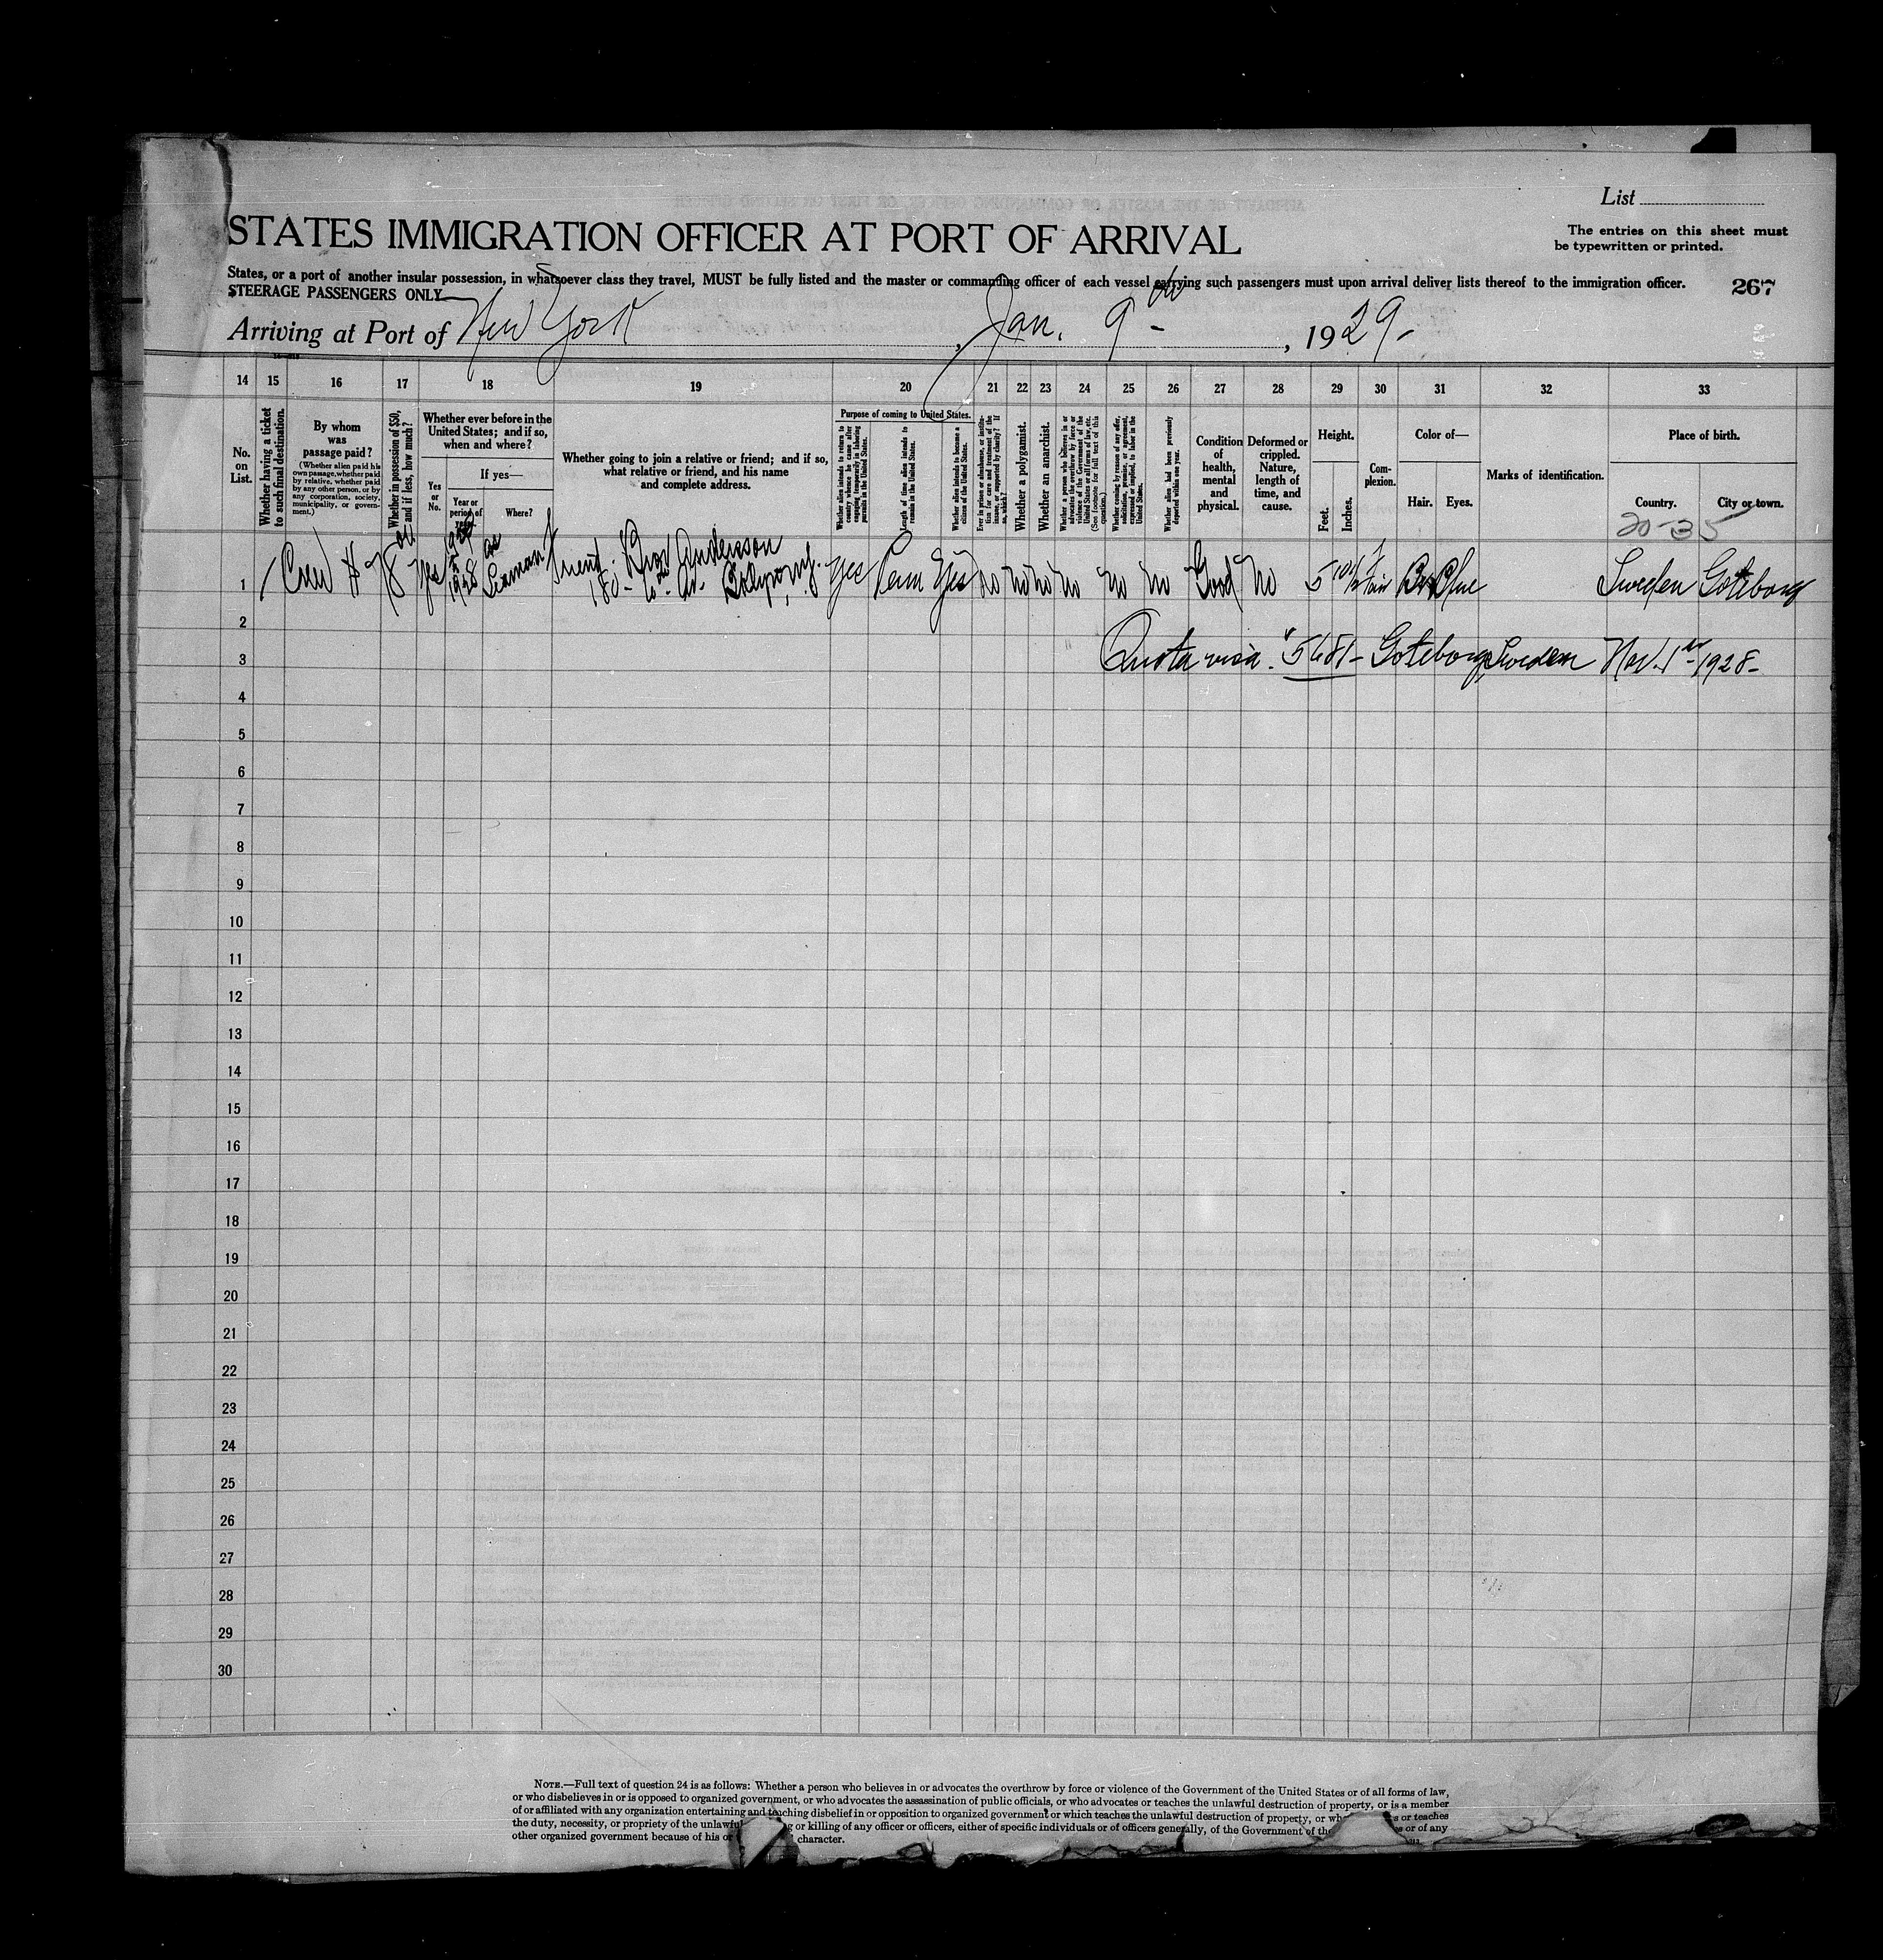 List
STATES IMMIGRATION OFFICER AT PORT OF ARRIVAL
The entries on this sheet must
be typewritten or printed.
States, or a port of another insular possession, in whatsoever class they travel, MUST be fully listed and the master or commanding officer of each vessel carrying such passengers must upon arrival deliver lists thereof to the immigration officer.
STEERAGE PASSENGERS ONLY
267
Arriving at Port of New York, Jan. 9th, 1929
14 15 16 17 18 19 20 21 22 23 24 25 26 27 28 29 30 31 32 33
No. on List.
Whether having a ticket to such final destination.
By whom was passage paid?
(Whether alien paid his own passage, whether paid by relative, whether paid by any other person, or by any corporation, society, municipality, or government.)
Whether in possession of $50, and if less, how much?
Whether ever before in the United States; and if so, when and where?
Yes or No.
If yes—
Year or period of years.
Where?
Whether going to join a relative or friend; and if so, what relative or friend, and his name and complete address.
Purpose of coming to United States.
Whether alien intends to return to country whence he came after engaging temporarily in laboring pursuits in the United States.
Length of time alien intends to remain in the United States.
Whether alien intends to become a citizen of the United States.
Ever in prison or almshouse, or institution for care and treatment of the insane, or supported by charity? If so, which?
Whether a polygamist.
Whether an anarchist.
Whether a person who believes in or advocates the overthrow by force or violence of the Government of the United States or all forms of law, etc. (See footnote for full text of this question.)
Whether coming by reason of any offer, solicitation, promise, or agreement, expressed or implied, to labor in the United States.
Whether alien had been previously deported within one year.
Condition of health, mental and physical.
Deformed or crippled. Nature, length of time, and cause.
Height.
Feet.
Inches.
Complexion.
Color of—
Hair. Eyes.
Marks of identification.
Place of birth.
Country. City or town.
20-35
1 Yes 1928 as Seaman Friend. Andersson yes Perm Yes no no no no no no Good no 5 10½ Fair Br Blue Sweden Goteborg
2
3 Quota visa 5681- Goteborg, Sweden Nov. 1st 1928-
4
5
6
7
8
9
10
11
12
13
14
15
16
17
18
19
20
21
22
23
24
25
26
27
28
29
30
NOTE.—Full text of question 24 is as follows: Whether a person who believes in or advocates the overthrow by force or violence of the Government of the United States or of all forms of law,
or who disbelieves in or is opposed to organized government, or who advocates the assassination of public officials, or who advocates or teaches the unlawful destruction of property, or is a member
of or affiliated with any organization entertaining and teaching disbelief in or opposition to organized government or which teaches the unlawful destruction of property, or who or teaches
the duty, necessity, or propriety of the unlawful or killing of any officer or officers, either of specific individuals or of officers generally, of the Government of the or of any
other organized government because of his or character.